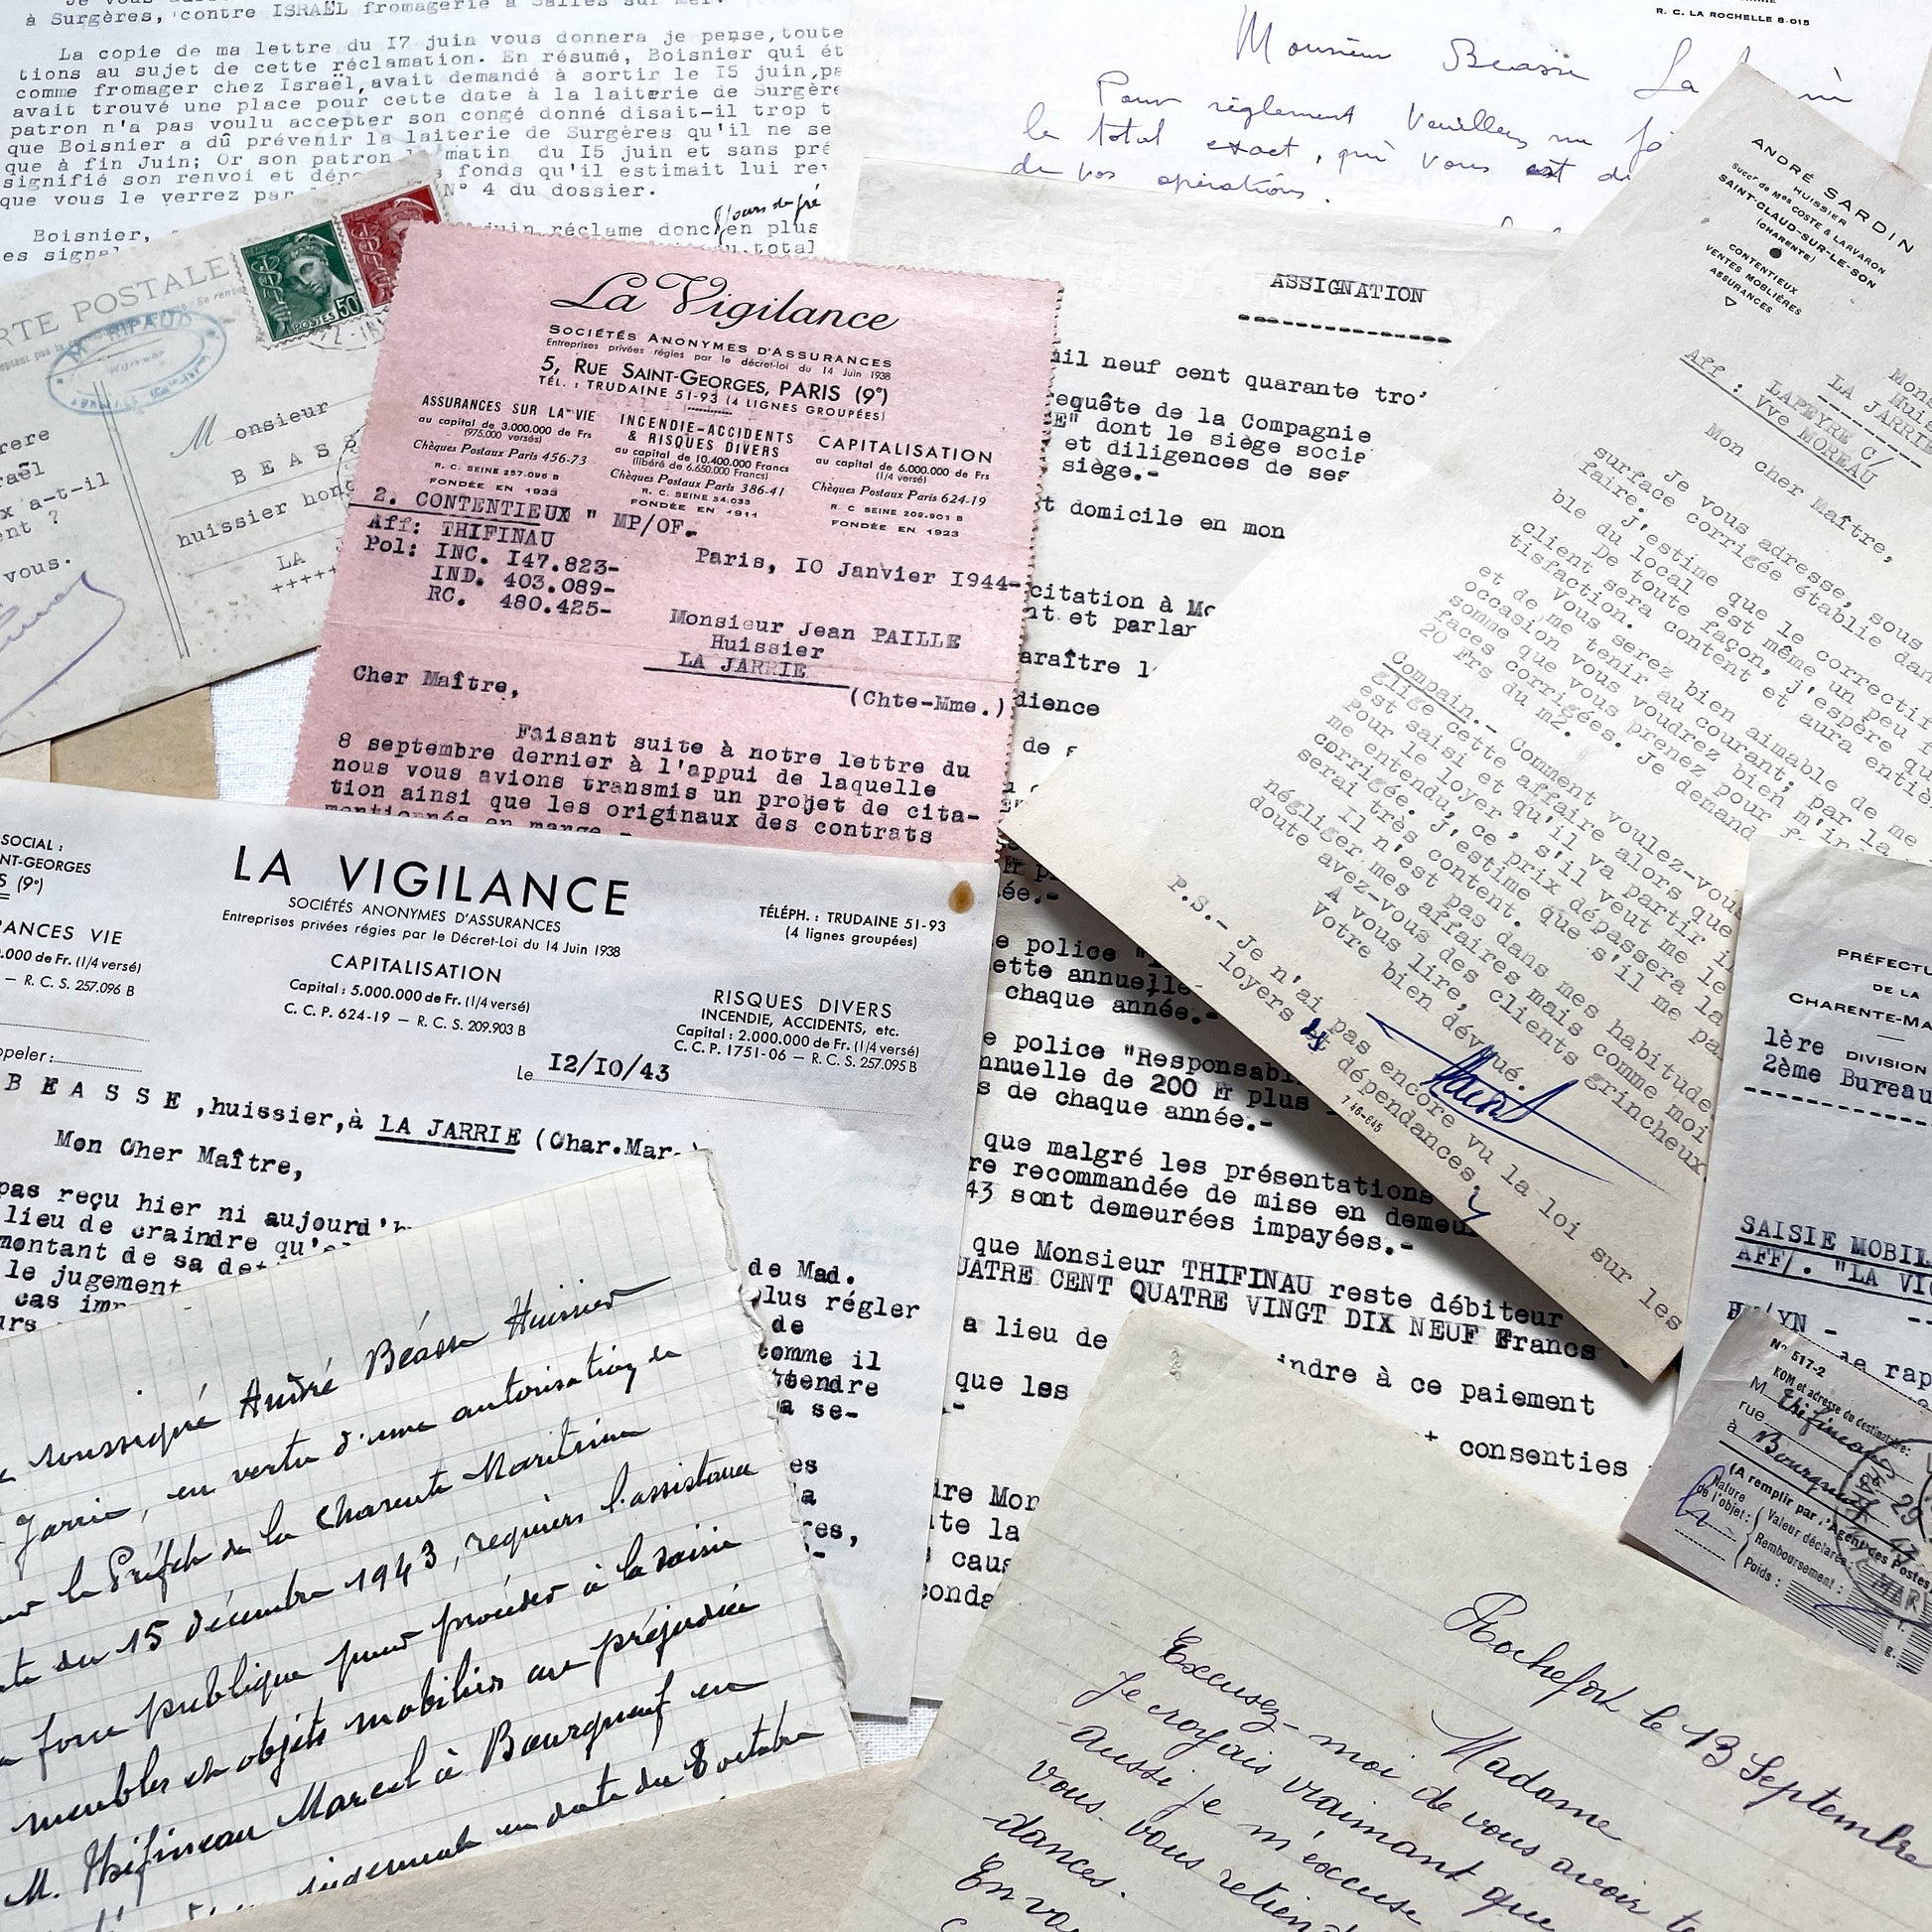 à Surgères, contre ISRAËL fromagerie à Salles sur Mer.
La copie de ma lettre du I7 juin vous donnera je pense, toute
tions au sujet de cette réclamation. En résumé, Boisnier qui ét
comme fromager chez Israël, avait demandé à sortir le I5 juin, pa
avait trouvé une place pour cette date à la laiterie de Surgère
patron n'a pas voulu accepter son congé donné disait-il trop t
que Boisnier a dû prévenir la laiterie de Surgères qu'il ne se
que à fin Juin; Or son patron matin du I5 juin et sans pré
signifié son renvoi et dépo fonds qu'il estimait lui re
que vous le verrez par N° 4 du dossier.
jours de pré
Boisnier, juin réclame donc en plus
es signe au total
R. C. LA ROCHELLE 8.015
Monsieur Beasse La
Pour règlement Veuillez me
le total exact, qui vous est
de vos opérations.
CARTE POSTALE
POSTES 50
M. RIPAUD
rere
raël
x a-t-il
ent ?
vous.
Monsieur
BEASS
huissier hono
LA
+++++
La Vigilance
SOCIÉTÉS ANONYMES D'ASSURANCES
Entreprises privées régies par le décret-loi du 14 Juin 1938
5, RUE SAINT-GEORGES, PARIS (9e)
TÉL. : TRUDAINE 51-93 (4 LIGNES GROUPÉES)
ASSURANCES SUR LA VIE
au capital de 3.000.000 de Frs
(975.000 versés)
Chèques Postaux Paris 456-73
R. C. SEINE 257.096 B
FONDÉE EN 1933
INCENDIE-ACCIDENTS
& RISQUES DIVERS
au capital de 10.400.000 Francs
(libéré de 6.650.000 Francs)
Chèques Postaux Paris 386-41
R. C. SEINE 34.033
FONDÉE EN 1911
CAPITALISATION
au capital de 6.000.000 de Frs
(1/4 versé)
Chèques Postaux Paris 624-19
R. C SEINE 209.903 B
FONDÉE EN 1923
2. CONTENTIEUX " MP/OF.
Aff: THIFINAU
Pol: INC. I47.823-
IND. 403.089-
RC. 480.425-
Paris, IO Janvier I944-
Monsieur Jean PAILLE
Huissier
LA JARRIE
(Chte-Mme.)
Cher Maître,
Faisant suite à notre lettre du
8 septembre dernier à l'appui de laquelle
nous vous avions transmis un projet de cita-
tion ainsi que les originaux des contrats
mentionnés en marge.-
ASSIGNATION
mil neuf cent quarante tro
requête de la Compagnie
E" dont le siège socia
et diligences de ses
siège.-
t domicile en mon
citation à Mo
nt et parlan
araître l'
dience
de
ée.-
e police "I
ette annuelle
chaque année.-
e police "Responsabi
nnuelle de 200 Fr plus
s de chaque année.-
que malgré les présentations
re recommandée de mise en demeu
43 sont demeurées impayées.-
que Monsieur THIFINAU reste débiteur
UATRE CENT QUATRE VINGT DIX NEUF Francs
a lieu de indre à ce paiement
que les consenties
dre Mon
ite la
caus
conda
ANDRÉ SARDIN
HUISSIER
Succr de Mes COSTE & LARVARON
SAINT-CLAUD-SUR-LE-SON
(CHARENTE)
CONTENTIEUX
VENTES MOBLIÈRES
ASSURANCES
Mons
Hui
LA JARRIE
Aff : LAPEYRE C/
Vve MOREAU
Mon cher Maître,
Je vous adresse, sous
surface corrigée établie dan
faire. J'estime que le correcti
ble du local est même un peu
De toute façon, j'espère qu
client sera content et aura entiè
tisfaction.
Vous serez bien aimable de me
et de me tenir au courant; par la
occasion vous voudrez bien m'in
somme que vous prenez pour
faces corrigées. Je demand
20 Frs du m2.
Compain.- Comment voulez-vous
glige cette affaire alors que
est saisi et qu'il va partir
Pour le loyer, s'il veut me le
me entendu, ce prix dépassera la
corrigée. J'estime que s'il me pa
serai très content.
Il n'est pas dans mes habitude
négliger mes affaires mais comme moi
doute avez-vous des clients grincheux
A vous lire,
Votre bien dévoué.
P.S.- Je n'ai pas encore vu la loi sur les
loyers et dépendances.
7 46-645
LA VIGILANCE
SOCIÉTÉS ANONYMES D'ASSURANCES
Entreprises privées régies par le Décret-Loi du 14 Juin 1938
SOCIAL :
NT-GEORGES
S (9e)
RANCES VIE
.000 de Fr. (1/4 versé)
— R. C. S. 257.096 B
CAPITALISATION
Capital : 5.000.000 de Fr. (1/4 versé)
C. C. P. 624-19 — R. C. S. 209.903 B
TÉLÉPH. : TRUDAINE 51-93
(4 lignes groupées)
RISQUES DIVERS
INCENDIE, ACCIDENTS, etc.
Capital : 2.000.000 de Fr. (1/4 versé)
C. C. P. 1751-06 — R. C. S. 257.095 B
ppeler:
Le I2/IO/43
BEASSE, huissier, à LA JARRIE (Char.Mar.
Mon Cher Maître,
pas reçu hier ni aujourd'hu
lieu de craindre qu'el
montant de sa det
le jugement
cas imp
urs
de Mad.
plus régler
de
comme il
ttendre
a se-
es
la
res,
soussigné André Béasse Huissier
Jarrie, en vertu d'une autorisation de
le Préfet de la Charente Maritime
du 15 décembre 1943, requiers l'assistance
force publique pour procéder à la saisie
meubles et objets mobiliers au préjudice
M. Thifineau Marcel à Bourgneuf en
jugement en date du 8 octobre
PRÉFECTU
DE LA
CHARENTE-MA
1ère DIVISION
2ème Bureau
SAISIE MOBIL
AFF/. "LA VIG
YN -
de rap
N° 517-2
NOM et adresse du destinataire:
M. Thifineau
rue
à Bourgneuf
(A remplir par l'Agent des Postes
Nature de l'objet:
Valeur déclarée
Remboursement :
Poids :
g.
Rochefort le 13 Septembre
Madame
Excusez-moi de vous avoir
Je croyais vraimant que
aussi je m'excuse
vous vous retien
dances.
En vo